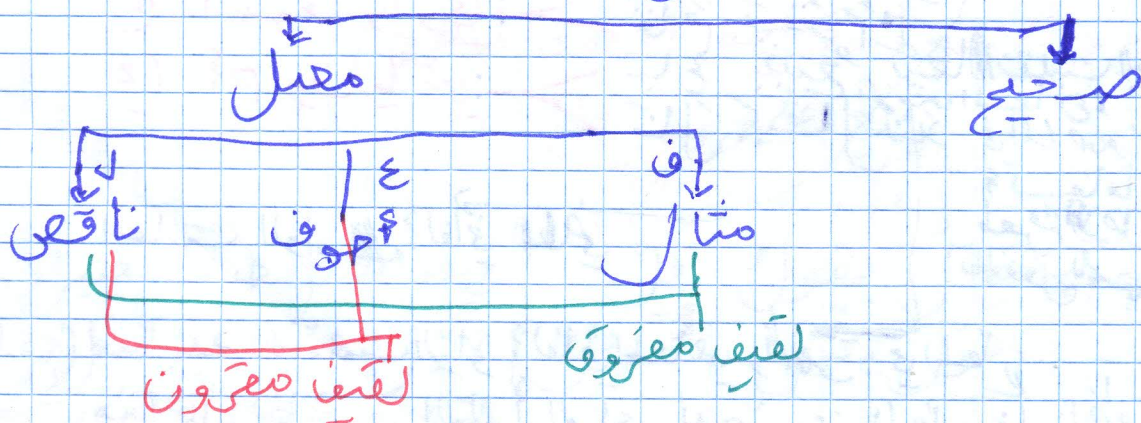 صحيح معتل
ف ع ل
مثال أجوف ناقص
لفيف مفروق
لفيف مقرون